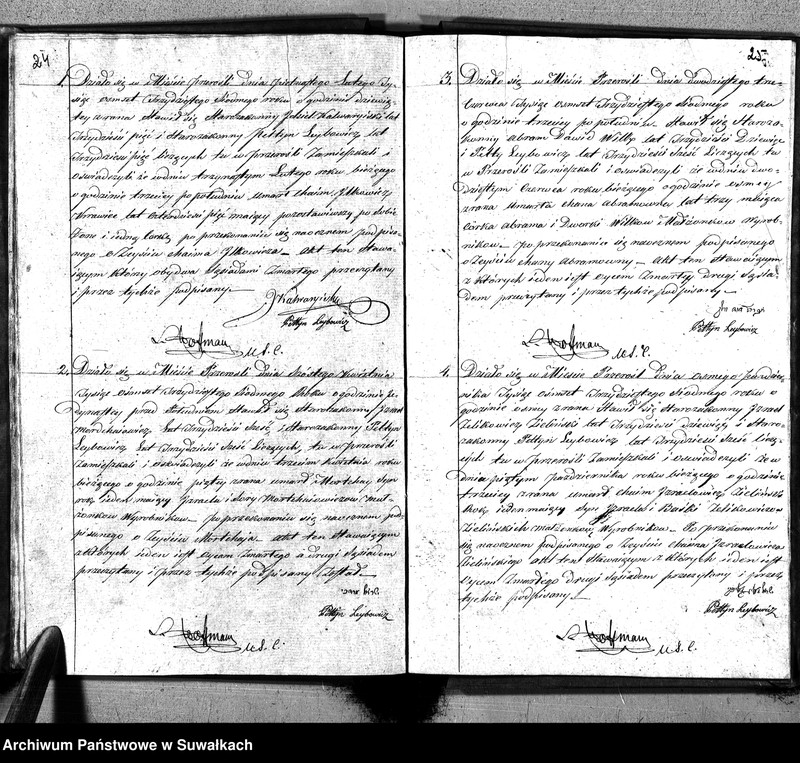 24
1. Działo się w Mieście Przerośli dnia piętnastego Lutego Ty-
siąc ośmset Trzydziestego Siodmego roku o godzinie dziewią-
tey zrana Stawił się Starozakonny Jankiel Kalwaryiski lat
Trzydzieści pięć i Starozakonny Peltyn Leybowicz lat
Trzydzieści pięć liczących tu w Przerośli Zamieszkali i
oświadczyli że w dniu trzynastym Lutego roku bieżącego
o godzinie trzeciey po południu umarł Chaim Jtkowicz
Krawiec lat czterdzieści pięć maiący pozostawiwszy po sobie
żonę i iedną Corkę, po przekonaniu się naocznem podpisa-
nego o Zeyściu Chaima Jtkowicza — akt ten Stawa-
iącym którzy obydwa Sąsiadami Zmarłego przeczytany
i przez tychże podpisany —
JKalwaryiski
Peltyn Leybowicz
Hoffman U.S.C.
2. Działo się w Mieście Przerośli dnia szóstego Kwietnia
Tysiąc ośmset Trzydziestego Siodmego Roku o godzinie Je-
dynastey przed Południem Stawił się Starozakonny Jzrael
Mortchniowicz lat Trzydzieści Sześć i Starozakonny Peltyn
Leybowicz lat Trzydzieści Sześć liczących, tu w Przerośli
Zamieszkali i oświadczyli że w dniu trzecim Kwietnia roku
bieżącego o godzinie piątey zrana umarł Mortchay Syn
rok ieden maiący Jzraela i Sory Mortchniowiczow mał-
żonkow Wyrobnikow — po przekonaniu się naocznem pod-
pisanego o Zeyściu Mortchaja akt ten Stawaiącym
z których ieden iest oycem Zmarłego a drugi Sąsiadem
przeczytany i przez tychże podpisany Został —
Peltyn Leybowicz
Hoffman U.S.C.
25
3. Działo się w Mieście Przerośli dnia dwudziestego trze-
Czerwca Tysiąc ośmset Trzydziestego Siodmego roku
o godzinie trzeciey po południu Stawił się Staroza-
konny Abram Dawid Wilk lat Trzydzieści Dziewięć
i Peltyn Leybowicz lat Trzydzieści Sześć liczących tu
w Przerośli Zamieszkali i oświadczyli że w dniu dwu-
dziestym Czerwca roku bieżącego o godzinie osmey
zrana umarła Chana Abramowna lat trzy maiąca
Córka Abrama i Dworki Wilkow Małżonkow Wyrob-
nikow — po przekonaniu się naocznem podpisanego
o Zeyściu Chany Abramowny — akt ten Stawaiącym
z których ieden iest oycem Zmarłey drugi Sąsia-
dem przeczytany i przez tychże podpisany —
Peltyn Leybowicz
Hoffman U.S.C.
4. Działo się w Mieście Przerośl dnia osmego Paździer-
nika Tysiąc ośmset Trzydziestego Siodmego roku o
godzinie osmey zrana Stawił się Starozakonny Jzrael
Zelikowicz Zieliński lat Trzydzieści dziewięć i Staro-
zakonny Peltyn Leybowicz lat Trzydzieści Sześć licz-
ących tu w Przerośli Zamieszkali i oświadczyli że w
dniu piątym Października roku bieżącego o godzinie
trzeciey zrana umarł Chaim Jzraelowicz Zieliński
Rok ieden maiący syn Jzraela i Baśki Zelikowiczow
Zielińskich małżonkow Wyrobnikow — Po przekonaniu
się naocznem podpisanego o Zeyściu Chaima Jzraelowicza
Zielinskiego akt ten Stawaiącym z których ieden iest
Oycem Zmarłego drugi Sąsiadem przeczytany i przez
tychże podpisany —
Peltyn Leybowicz
Hoffman U.S.C.
Archiwum Państwowe w Suwałkach